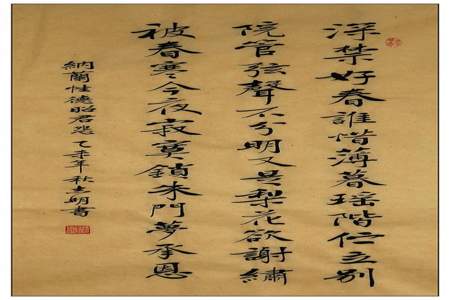 深禁好春誰惜薄暮瑶階伫立别
院管弦聲不分明又是梨花欲謝繡
被春寒今夜寂寞鎖朱門夢承恩
納蘭性德昭君怨 乙未年秋 明書